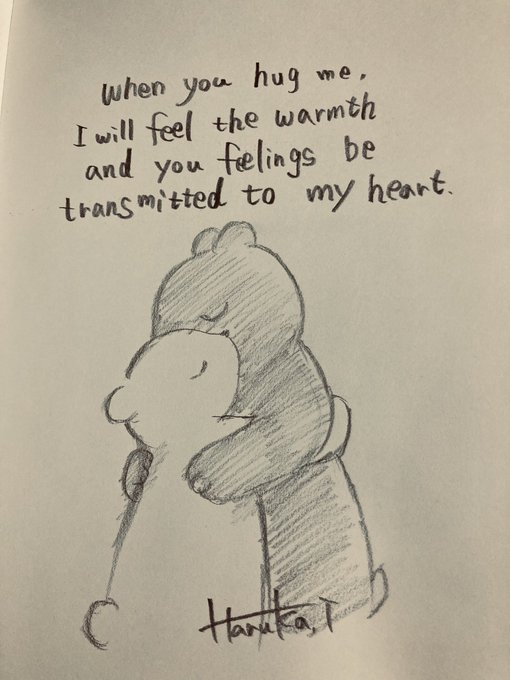 When you hug me,
I will feel the warmth
and you feelings be
transmitted to my heart.
Haruka.T